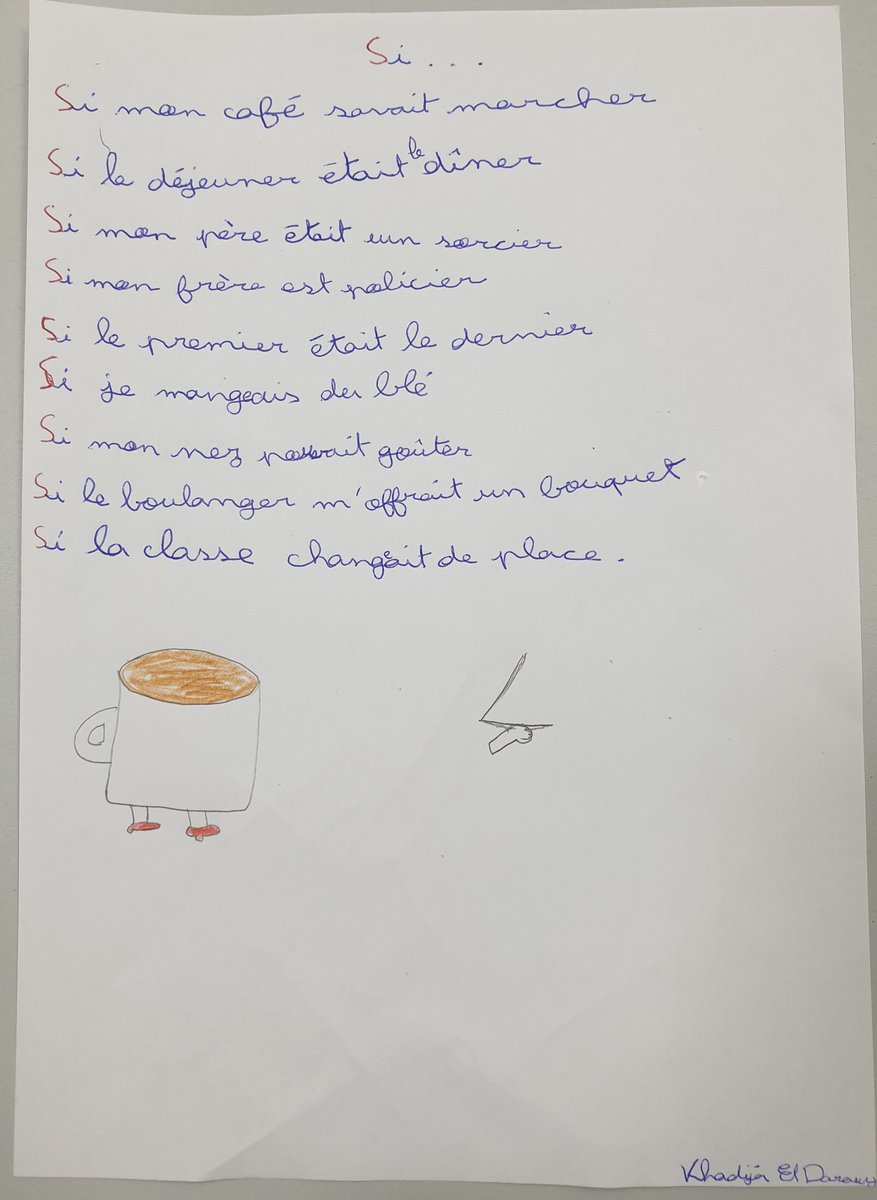 Si...
Si mon café savait marcher
Si le déjeuner était le dîner
Si mon père était un sorcier
Si mon frère est policier
Si le premier était le dernier
Si je mangeais du blé
Si mon nez pouvait goûter
Si le boulanger m'offrait un bouquet
Si la classe changeait de place.
Khadija El